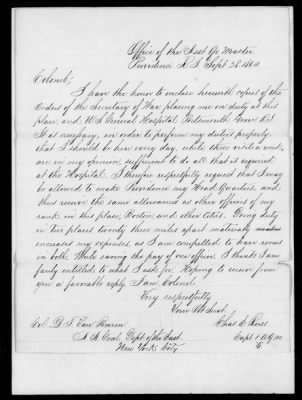 Office of the Asst Qr. Master,
Providence R. I. Sept 28 1864
Colonel;
I have the honor to enclose herewith copies of the
Orders of the Secretary of War placing me on duty at this
place and U. S. General Hospital Portsmouth Grove R. I
It is necessary, in order to perform my duties properly,
that I should be here every day, while three visits a week,
are in my opinion, sufficient to do all that is required
at the Hospital. I therefore respectfully request that I may
be allowed to make Providence my Head Quarters, and
thus receive the same allowances as other officers of my
rank in this place, Boston and other cities. Doing duty
in two places twenty three miles apart materially
increases my expenses as I am compelled to have rooms
in both. While saving the pay of one officer. I think I am
fairly entitled to what I ask for. Hoping to receive from
you a favorable reply I am Colonel
Very respectfully
Your Obt Servt
Col. D. T. Van Buren Chas E. Russ
A. A. Genl. Dept of the East. Capt & A. Q. M.
New York City